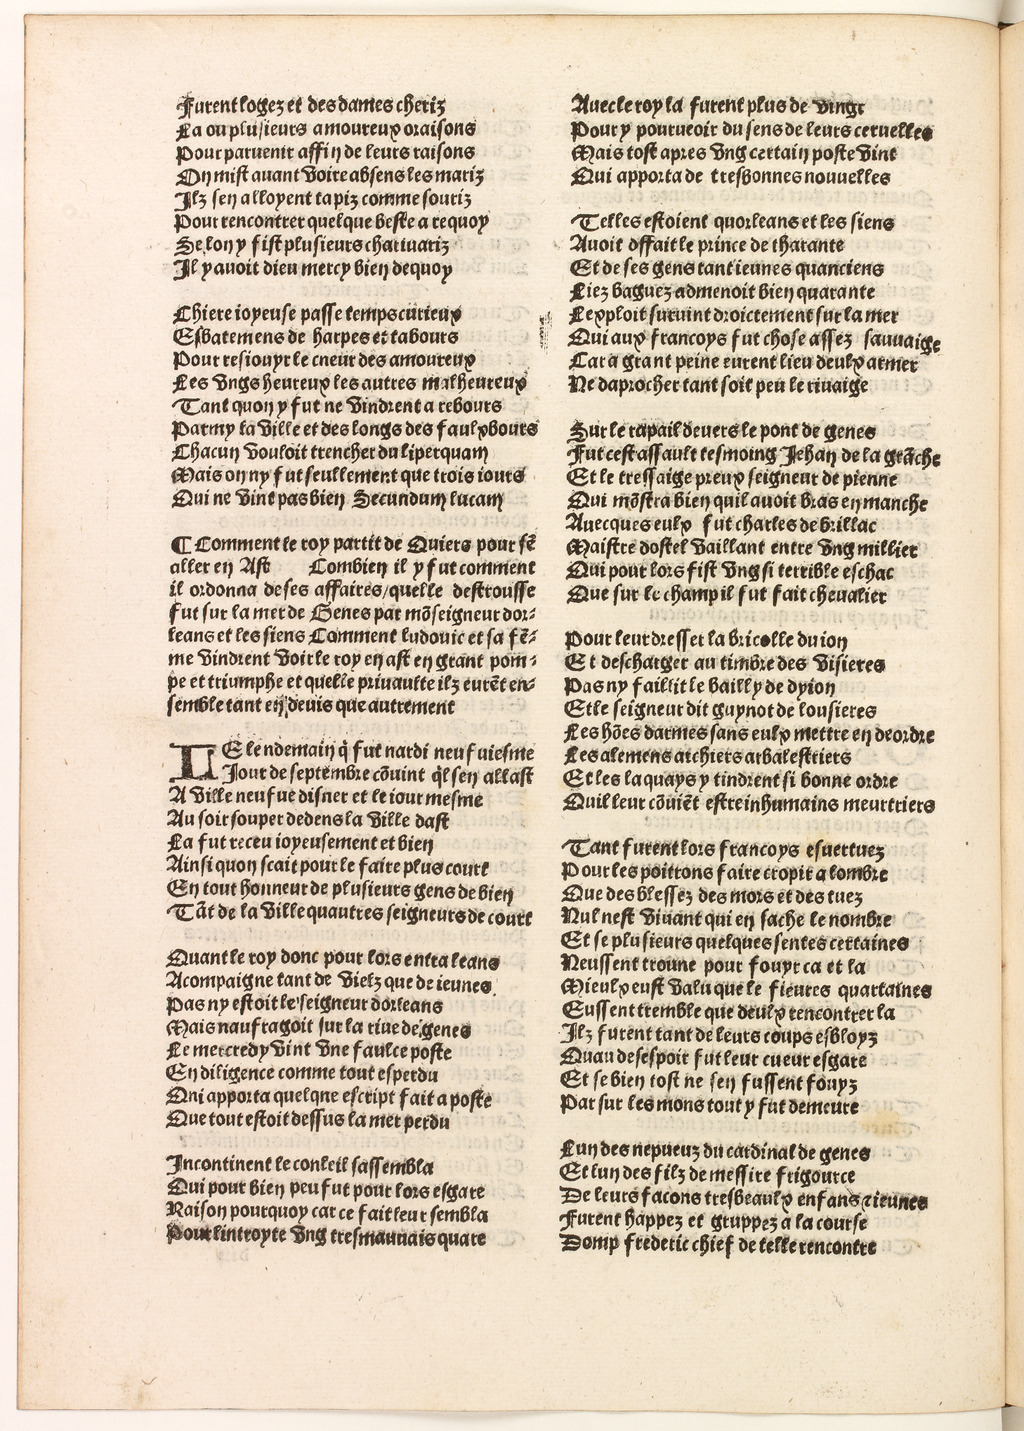 Furent logez et des dames cheriz
La ou plusieurs amoureux oraisons
Pour paruenir affin de leurs raisons
On mist auant voire absens les mariz
Ilz sen alloyent tapiz comme souriz
Pour rencontrer quelque beste a requoy
Se lon y fist plusieurs chariuariz
Il y auoit dieu mercy bien dequoy
Chiere ioyeuse passe temps curieux
Esbatemens de harpes et tabours
Pour resiouyr le cneur des amoureux
Les vngs heureux les autres malheureux
Tant quon y fut ne vindrent a rebours
Parmy la ville et des longs des faulxbours
Chacun vouloit trencher du liperquam
Mais on ny fut seullement que trois iours
Qui ne vint pas bien Secundum lucam
¶ Comment le roy partit de Quiers pour sē
aller en Ast Combien il y fut comment
il ordonna de ses affaires/quelle destrousse
fut sur la mer de Genes par mōseigneur dor-
leans et les siens Comment ludouic et sa fē-
me vindrent voir le roy en ast en grant pom-
pe et triumphe et quelle priuaulte ilz eurēt en-
semble tant en deuis que autrement
LE lendemain q̄ fut nardi neufuiesme
Jour de septembre cōuint ql̄ sen allast
A ville neufue disner et le iour mesme
Au soir souper dedens la ville dast
La fut receu ioyeusement et bien
Ainsi quon scait pour le faire plus court
En tout honneur de plusieurs gens de bien
Tāt de la ville quautres seigneurs de court
Quant le roy donc pour lors entra leans
Acompaigne tant de vielz que de ieunes
Pas ny estoit le seigneur dorleans
Mais naufragoit sur la riue de genes
Le mercredy vint vne faulce poste
En diligence comme tout esperdu
Qni apporta quelqne escript fait a poste
Que tout estoit dessus la mer perdu
Incontinent le conseil sassembla
Qui pour bien peu fut pour lors esgare
Raison pourquoy car ce fait leur sembla
Pour lintroyte vng tresmauuais quare
Auec le roy la furent plus de vingt
Pour y pourueoir du sens de leurs ceruelles
Mais tost apres vng certain poste vint
Qui apporta de tresbonnes nouuelles
Telles estoient quorleans et les siens
Auoit dffait le prince de tharante
Et de ses gens tant ieunes quanciens
Liez baguez admenoit bien quarante
Lexploit suruint droictement sur la mer
Qui aux francoys fut chose assez sauuaige
Car a grant peine eurent lieu deulx armer
Ne daprocher tant soit peu le riuaige
Sur le rapail deuers le pont de genes
Fut cest assault tesmoing Jehan de la grāche
Et le tressaige preux seigneur de pienne
Qui mōstra bien quil auoit bras en manche
Auecques eulx fut charles de brillac
Maistre dostel vaillant entre vng millier
Qui pour lors fist vng si terrible eschac
Que sur le champ il fut fait cheualier
Pour leur dresser la bricolle du ion
Et descharger au timbre des visieres
Pas ny faillit le bailly de dyion
Et le seigneur dit guynot de lousieres
Les hōes darmes sans eulx mettre en deordre
Les alemens archiers arbalestriers
Et les laquays y tindrent si bonne ordre
Quil leur cōuiēt estre inhumains meurtriers
Tant furent lors francoys esuertuez
Pour les poittrons faire cropir a lombre
Que des blessez des mors et des tuez
Nul nest viuant qui en sache le nombre
Et se plusieurs quelques sentes certaines
Neussent troune pour fouyr ca et la
Mieulx eust valu que le fieures quartaines
Eussent tremble que deulx rencontrer la
Ilz furent tant de leurs coups esbloyz
Quau desespoir fut leur cueur esgare
Et se bien tost ne sen fussent fouyz
Par sur les mons tout y fut demeure
Lun des nepueuz du cardinal de genes
Et lun des filz de messire frigource
De leurs facons tresbeaulx enfans & ieunes
Furent happez et gruppez a la course
Domp frederic chief de telle rencontre